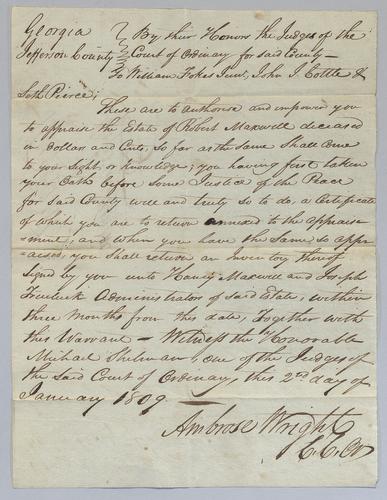 Georgia
Jefferson County
By their Honors the Judges of the
Court of Ordinary for said County –
To William Fokes Junr, John J. Cottle &
Seth Pierce;
These are to authorise and empower you
to appraise the Estate of Robert Maxwell deceased
in dollars and Cents, so far as the same shall Come
to your sight, or knowledge; you having first taken
your Oath before some Justice of the Peace
for said County well and truly so to do, a Certificate
of which you are to return annexed to the appraise
=ment, and when you have the same so appr=
=aised, you shall return an inventory thereof
signd by you unto Haney Maxwell and Joseph
Administrators of said Estate, within
three Months from this date, Together with
this Warrant – Witness the Honorable
Michael Shelman one of the Judges of
the said Court of Ordinary, this 2nd day of
January 1809
Ambrose Wright
C.C.O